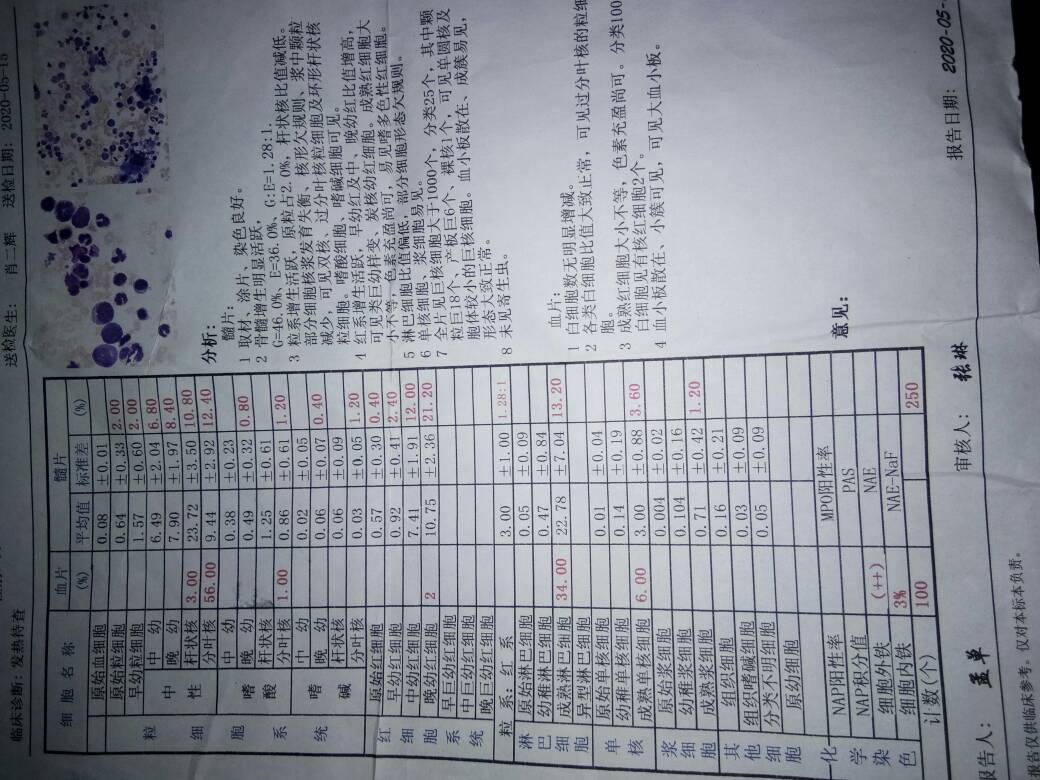 临床诊断: 发热待查
送检医生: 肖二辉 送检日期: 2020-05-15
细 胞 名 称 血片 (%) 髓片 平均值 标准差 (%)
粒 细 胞 系 统
原始血细胞 0.08 ±0.01
原始粒细胞 0.64 ±0.33 2.00
早幼粒细胞 1.57 ±0.60 2.00
中 性
中 幼 6.49 ±2.04 6.80
晚 幼 7.90 ±1.97 8.40
杆状核 3.00 23.72 ±3.50 10.80
分叶核 56.00 9.44 ±2.92 12.40
嗜 酸
中 幼 0.38 ±0.23
晚 幼 0.49 ±0.32 0.80
杆状核 1.25 ±0.61
分叶核 1.00 0.86 ±0.61 1.20
嗜 碱
中 幼 0.02 ±0.05
晚 幼 0.06 ±0.07 0.40
杆状核 0.06 ±0.09
分叶核 0.03 ±0.05 1.20
红 细 胞 系 统
原始红细胞 0.57 ±0.30 0.40
早幼红细胞 0.92 ±0.41 2.40
中幼红细胞 7.41 ±1.91 12.00
晚幼红细胞 2 10.75 ±2.36 21.20
早巨幼红细胞
中巨幼红细胞
晚巨幼红细胞
粒 系: 红 系 3.00 ±1.00 1.28:1
淋 巴 细 胞
原始淋巴细胞 0.05 ±0.09
幼稚淋巴细胞 0.47 ±0.84
成熟淋巴细胞 34.00 22.78 ±7.04 13.20
异型淋巴细胞
单 核
原始单核细胞 0.01 ±0.04
幼稚单核细胞 0.14 ±0.19
成熟单核细胞 6.00 3.00 ±0.88 3.60
浆 细 胞
原始浆细胞 0.004 ±0.02
幼稚浆细胞 0.104 ±0.16
成熟浆细胞 0.71 ±0.42 1.20
其 他 细 胞
组织细胞 0.16 ±0.21
组织嗜碱细胞 0.03 ±0.09
分类不明细胞 0.05 ±0.09
原幼细胞
化 学 染 色
NAP阳性率 MPO阳性率
NAP积分值 PAS
细胞外铁 (++) NAE
细胞内铁 3% NAE-NaF
计数(个) 100 250
分析:
髓片:
1 取材、涂片、染色良好。
2 骨髓增生明显活跃,
G=46.0%、E=36.0%、G:E=1.28:1。
3 粒系增生活跃,原粒占2.0%,杆状核比值减低。
部分细胞核浆发育失衡、核形欠规则、浆中颗粒
减少,可见双核、过分叶核粒细胞及环形杆状核
粒细胞。嗜酸细胞、嗜碱细胞可见。
4 红系增生活跃,早幼红及中、晚幼红比值增高,
可见类巨幼样变、炭核幼红细胞。成熟红细胞大
小不等,色素充盈尚可,易见嗜多色性红细胞。
5 淋巴细胞比值偏低,部分细胞形态欠规则。
6 单核细胞、浆细胞易见。
7 全片见巨核细胞大于1000个,分类25个,其中颗
粒巨18个、产板巨6个、裸核1个,可见单圆核及
胞体较小的巨核细胞。血小板散在、成簇易见,
形态大致正常。
8 未见寄生虫。
血片:
1 白细胞数无明显增减。
2 各类白细胞比值大致正常,可见过分叶核的粒细
胞。
3 成熟红细胞大小不等,色素充盈尚可。分类100
细胞见有核红细胞2个。
4 血小板散在、小簇可见,可见大血小板。
意见:
报告人: 孟单 审核人: 张琳 报告日期: 2020-05-
报告仅供临床参考。仅对本标本负责。